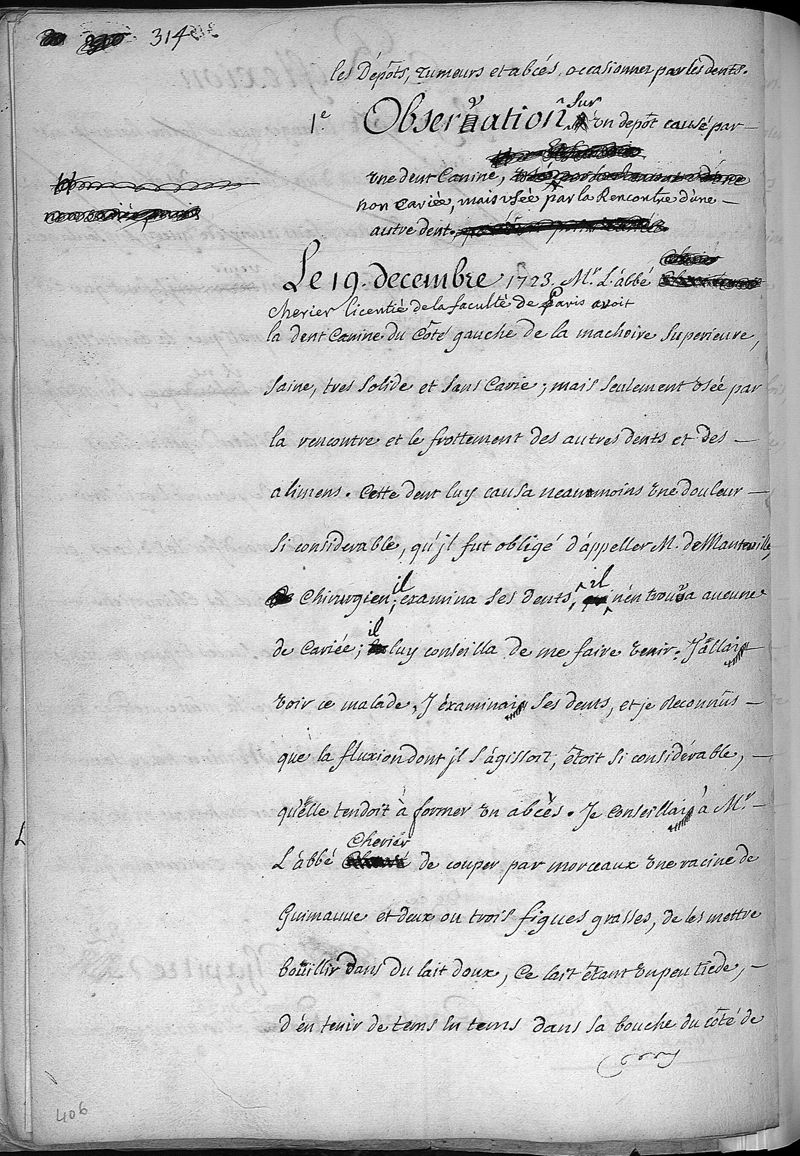 314
les Dépôts, tumeurs et abcés, occasionnez par les dents.
1e Observation sur un depôt causé par
une dent Canine,
non Cariée, mais usée par la Rencontre d'une
autre dent,
Le 19. decembre 1723. Mr. L'abbé
cherier licentié de la faculté de Paris avoit
la dent Canine du Côté gauche de la machoire Superieure,
saine, tres solide et sans Carie; mais seulement usée par
la rencontre et le frottement des autres dents et des
alimens. Cette dent luy causa neanmoins une douleur
si considerable, qu'jl fut obligé d'appeller M. de Manteville,
Chirurgien; il examina ses dents, il n'en trouva aucune
de Cariée; il luy conseilla de me faire venir. J'allai
voir ce malade, J'éxaminai ses dents, et je reconnus
que la fluxion dont jl s'ágissoit, étoit si considérable,
qu'elle tendoit à former un abcés. Je conseillai à Mr.
L'abbé Cherier de couper par morceaux une racine de
Guimauve et deux ou trois figues grasses, de les mettre
bouillir dans du lait doux, Ce lait étant un peu tiede,
d'én tenir de tems en tems dans sa bouche du côté de
406